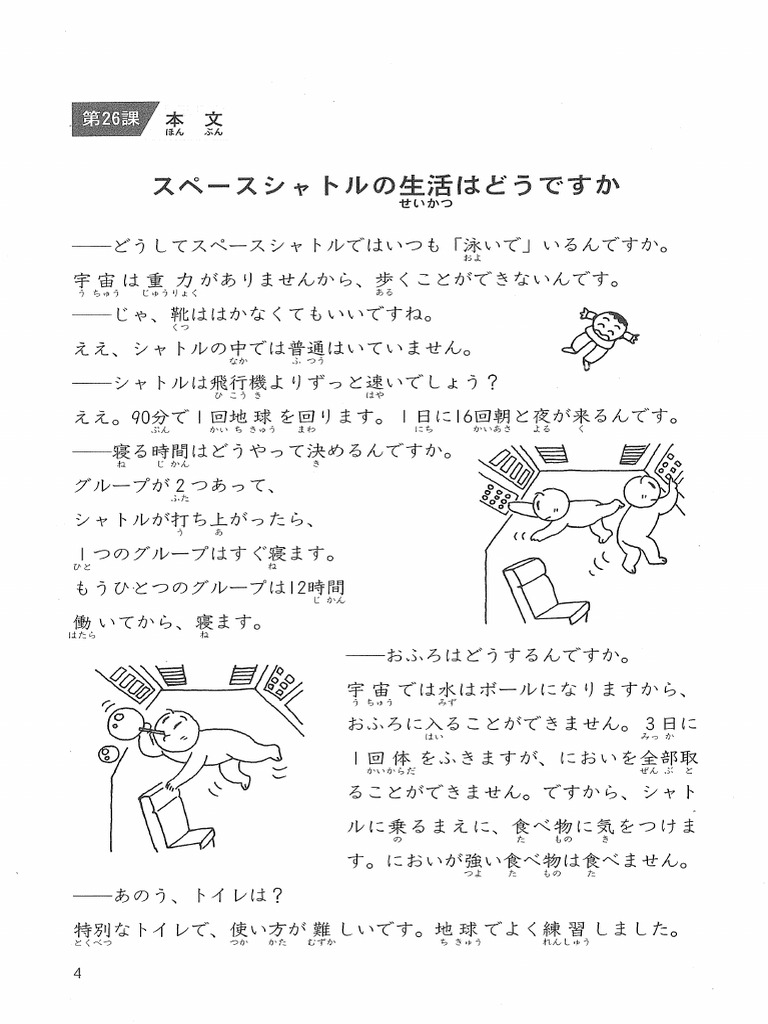 第26課 本文
ほん ぶん
スペースシャトルの生活はどうですか
せいかつ
――どうしてスペースシャトルではいつも「泳いで」いるんですか。
およ
宇宙は重力がありませんから、歩くことができないんです。
う ちゅう じゅうりょく ある
――じゃ、靴ははかなくてもいいですね。
くつ
ええ、シャトルの中では普通はいていません。
なか ふ つう
――シャトルは飛行機よりずっと速いでしょう？
ひ こう き はや
ええ。90分で1回地球を回ります。1日に16回朝と夜が来るんです。
ぷん かい ち きゅう まわ にち かいあさ よる く
――寝る時間はどうやって決めるんですか。
ね じ かん き
グループが2つあって、
ふた
シャトルが打ち上がったら、
う あ
1つのグループはすぐ寝ます。
ひと ね
もうひとつのグループは12時間
じ かん
働いてから、寝ます。
はたら ね
――おふろはどうするんですか。
宇宙では水はボールになりますから、
う ちゅう みず
おふろに入ることができません。3日に
はい みっ か
1回体をふきますが、においを全部取
かいからだ ぜん ぶ と
ることができません。ですから、シャト
ルに乗るまえに、食べ物に気をつけま
の た もの き
す。においが強い食べ物は食べません。
つよ た もの た
――あのう、トイレは？
特別なトイレで、使い方が難しいです。地球でよく練習しました。
とくべつ つか かた むずか ち きゅう れんしゅう
4